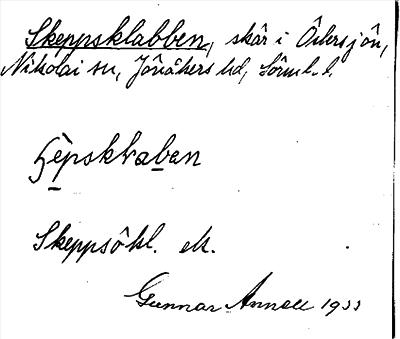 Skeppsklabben, skär i Östersjön,
Nikolai sn, Jönåkers hd, Sörml. l.
Skeppsökl. ek.
Gunnar Annell 1933